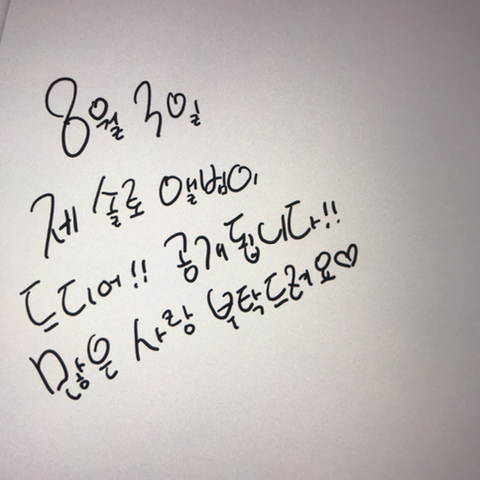 8월 30일
제 솔로 앨범이
드디어!! 공개됩니다!!
많은 사랑 부탁드려요♡